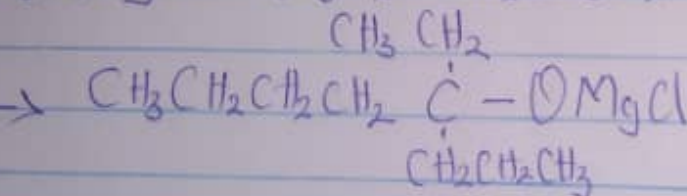 CH₃ CH₂
→ CH₃CH₂CH₂CH₂ C - OMgCl
CH₂CH₂CH₃